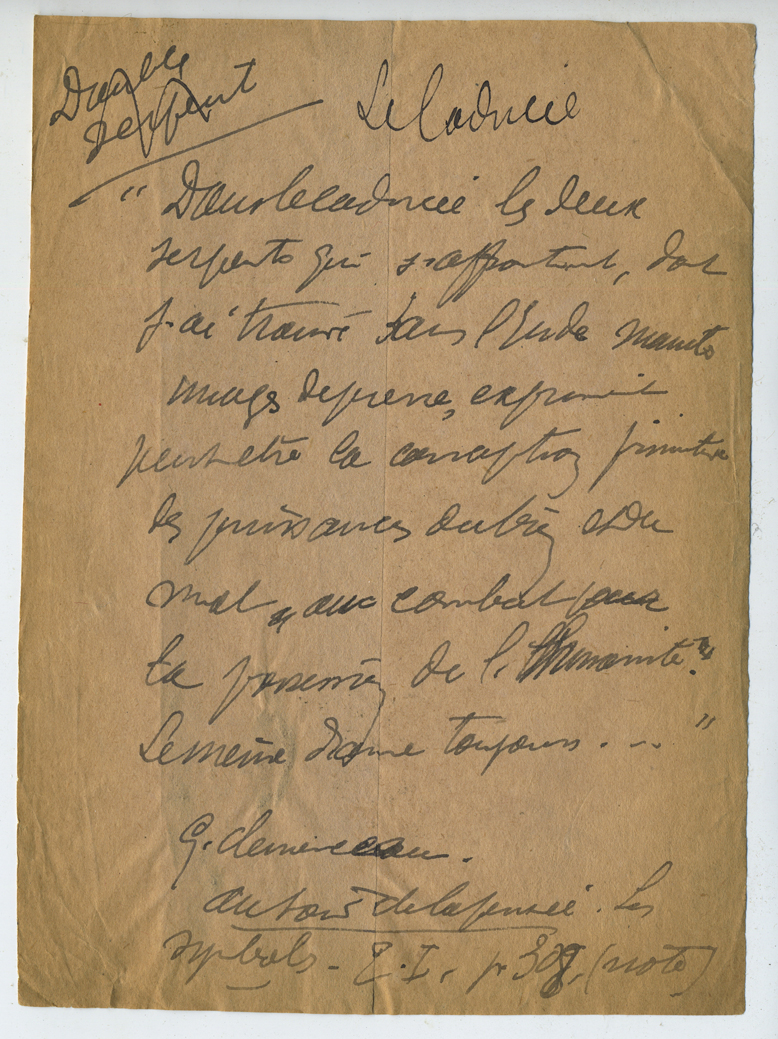 Double
serpent
Le Caducée
" Dans le caducée les deux
serpents qui s'affrontent, dont
j'ai trouvé dans l'Inde maintes
images de pierre, expriment
peut-être la conception primitive
des puissances du bien et du
mal, au combat pour
la possession de l'Humanité."
Le même drame toujours... "
G. Clemenceau.
Au soir de la pensée. Les
symboles - T. I, p. (note)